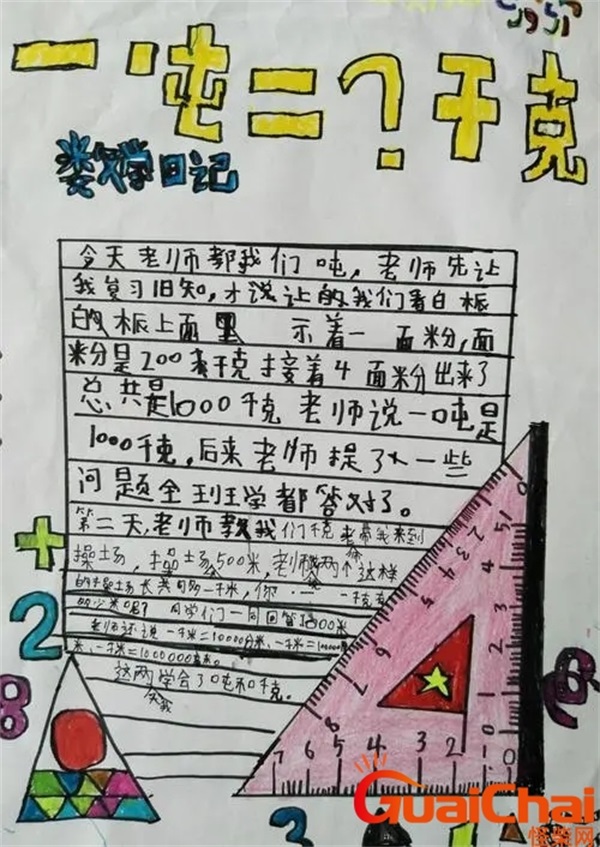 一吨=?千克
数学日记
今天老师都我们吨,老师先让
我复习旧知,才说让的我们看白板
白板上面 示着一面粉,面
粉是200千克接着4面粉出来了
总共是1000千克老师说一吨是
1000千克,后来老师提了一些
问题全班学都答对了。
第二天,老师教我们千克 老带我来到
操场,操场500米,老师 两个这样
的操场长共多一千米,你 一千克
多少米呢?同学们一同回答1000米
老师还说一千米=10000分米、一千米=100000
米、一千米=1000000毫米。
这两 学会了吨和千克。
天我
+
2
8
3
7 6 5 4 3 2 1 0
GuaiChai
怪柴网